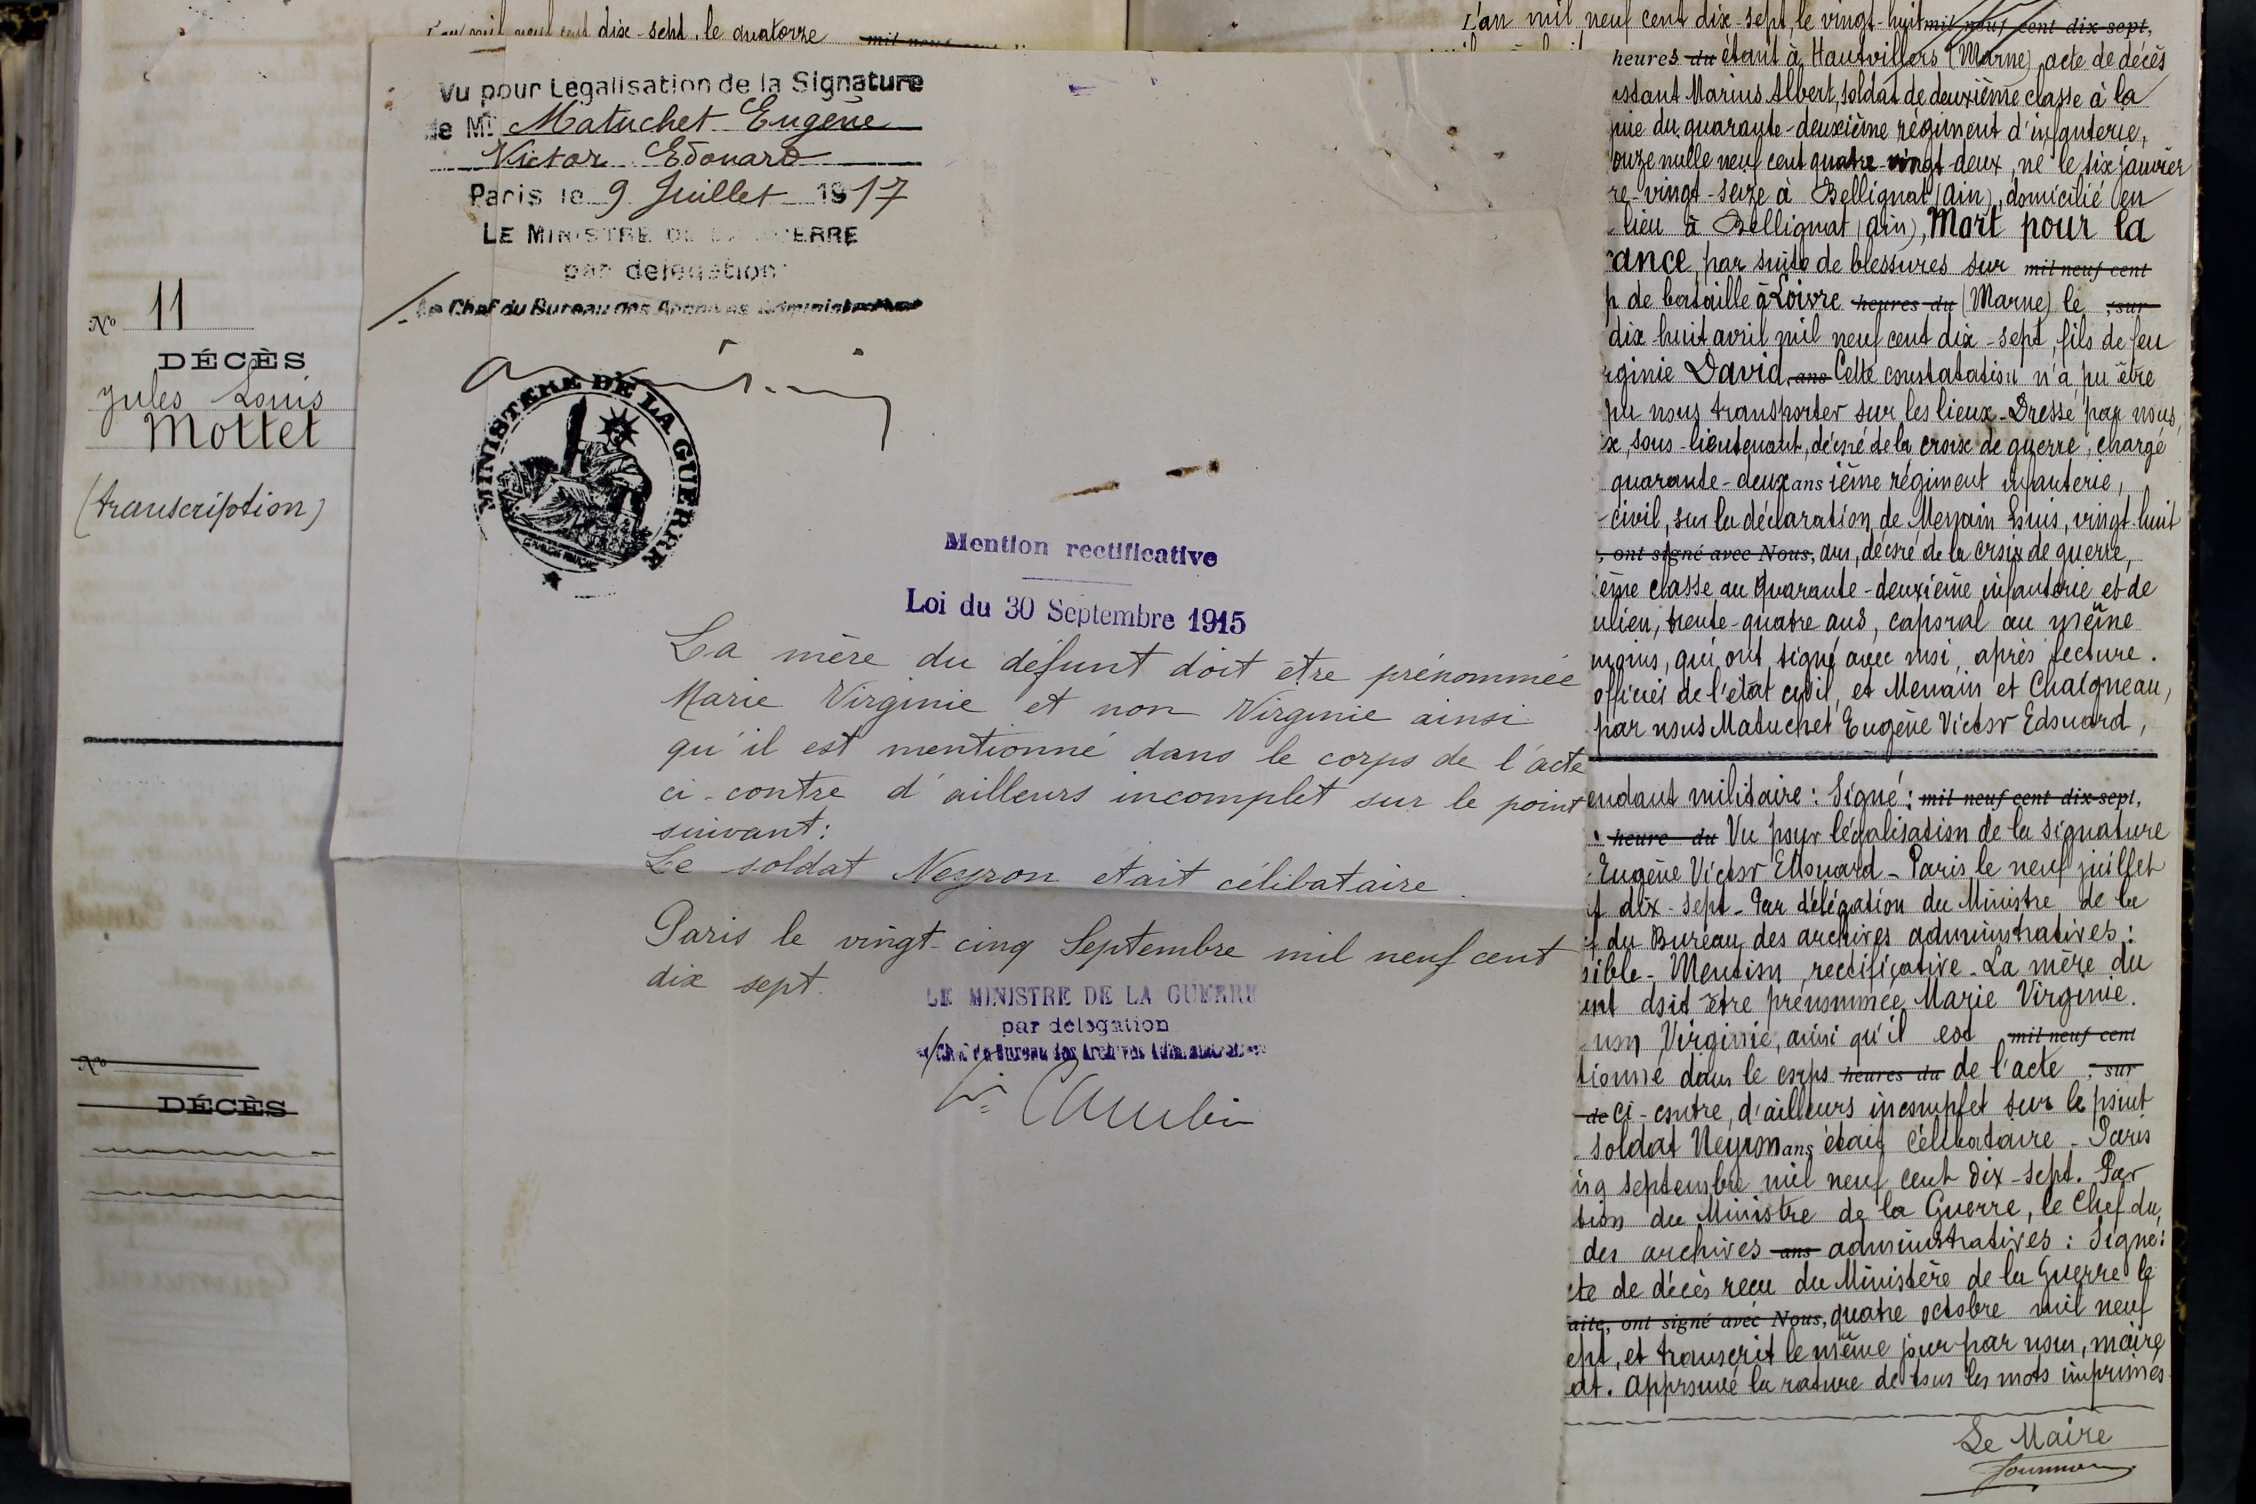 dix-sept, le quatorze
No 11
DÉCÈS
Jules Louis
Mottet
(transcription)
No
DÉCÈS
Vu pour Légalisation de la Signature
de Mr Matuchet Eugène
Victor Edouard
Paris le 9 Juillet 1917
LE MINISTRE DE LA GUERRE
par délégation
Le Chef du Bureau des Archives Administratives
MINISTERE DE LA GUERRE
Mention rectificative
Loi du 30 Septembre 1915
La mère du défunt doit être prénommée
Marie Virginie et non Virginie ainsi
qu'il est mentionné dans le corps de l'acte
ci-contre d'ailleurs incomplet sur le point
suivant:
Le soldat Neyron était célibataire.
Paris le vingt-cinq Septembre mil neuf cent
dix sept.
LE MINISTRE DE LA GUERRE
par délégation
Chef du Bureau des Archives Administratives
L'an mil neuf cent dix-sept, le vingt-huit mil neuf cent dix-sept,
heures du étant à Hautvillers (Marne) acte de décès
Marius Albert, soldat de deuxième classe à la
nie du quarante-deuxième régiment d'infanterie,
onze mille neuf cent quatre-vingt-deux, né le six janvier
re-vingt-seize à Bellignat (Ain), domicilié en
lieu à Bellignat (Ain), Mort pour la
rance, par suite de blessures sur mil neuf cent
p de bataille à Loivre heures du (Marne) le , sur
dix huit avril mil neuf cent dix-sept, fils de feu
rginie David, ans Cette constatation n'a pu être
pu nous transporter sur les lieux - Dressé par nous,
x, sous-lieutenant, décoré de la croix de guerre, chargé
quarante-deux ans ième régiment infanterie,
civil, sur la déclaration de Menain Louis, vingt-huit
, ont signé avec Nous, ans, décoré de la croix de guerre,
ème classe au quarante-deuxième infanterie et de
ulien, trente-quatre ans, caporal au même
moins, qui ont signé avec moi, après lecture.
officier de l'état civil, et Menain et Chaigneau,
par nous Matuchet Eugène Victor Edouard,
endant militaire: Signé: mil neuf cent dix-sept,
heure du Vu pour légalisation de la signature
Eugène Victor Edouard - Paris, le neuf juillet
f dix-sept - Par délégation du Ministre de la
f du Bureau des archives administratives:
sible - Mention rectificative - La mère du
unt doit être prénommée Marie Virginie.
non Virginie, ainsi qu'il est mil neuf cent
tionné dans le corps heures du de l'acte , sur
de ci-contre, d'ailleurs incomplet sur le point
soldat Neyron ans était célibataire - Paris
inq septembre mil neuf cent dix-sept. Par
tion du Ministre de la Guerre, le Chef du
des archives ans administratives: Signé:
cte de décès reçu du Ministère de la Guerre le
aite, ont signé avec Nous, quatre octobre mil neuf
ept, et transcrit le même jour par nous, maire
at. Approuvé la rature de tous les mots imprimés
Le Maire